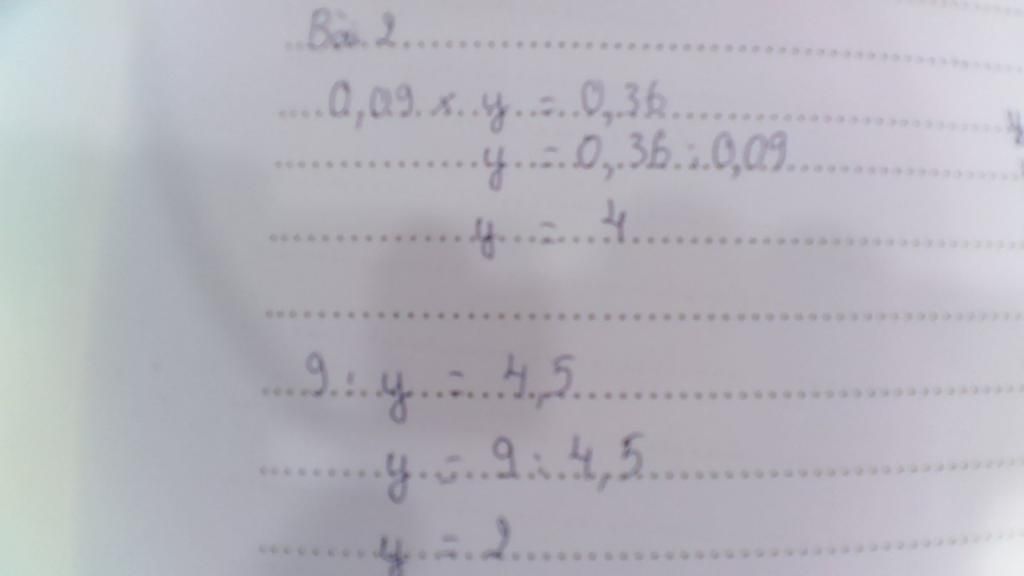 Bài 2
0,09 x y = 0,36
y = 0,36 : 0,09
y = 4
9 : y = 4,5
y = 9 : 4,5
y = 2